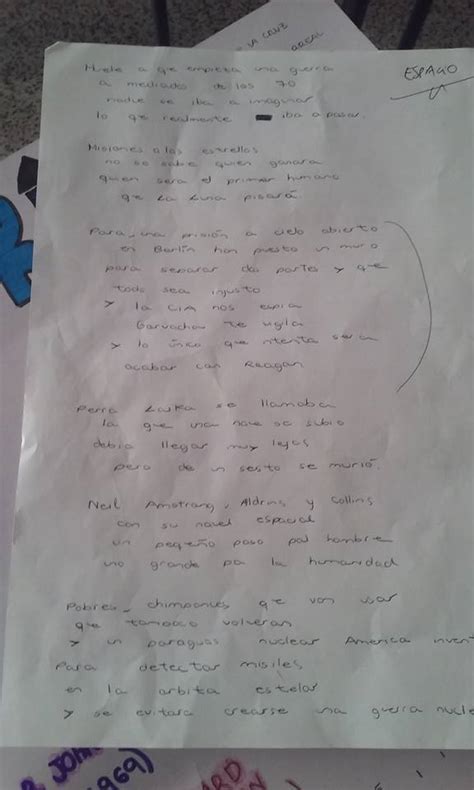 LA CRUZ
ESPACIO
Huele a qe empieza una guerra
a mediados de los 70
nadie se iba a imaginar
lo qe realmente iba a pasar.
Misiones a las estrellas
no se sabe quien ganara
quien sera el primer humano
qe la luna pisará.
Para una prisión a cielo abierto
en Berlín han puesto un muro
para separar dos partes y que
todo sea injusto
y la CIA nos espia
Gorvachov te vigila
y lo único que intenta sera
acabar con Reagan
Perra Laika se llamaba
la que una nave se subio
debia llegar muy lejos
pero de un sesto se murió.
Neil Amstrang, Aldrins y Collins
con su navel espacial
un pequeño paso pal hombre
uno grande pa la humanidad
Pobres chimpances que van usar
que tampoco volveran
y un paraguas nuclear America inven
Para detectar misiles
en la orbita estelar
y se evitara crearse una guerra nucle
JOHN
1969)